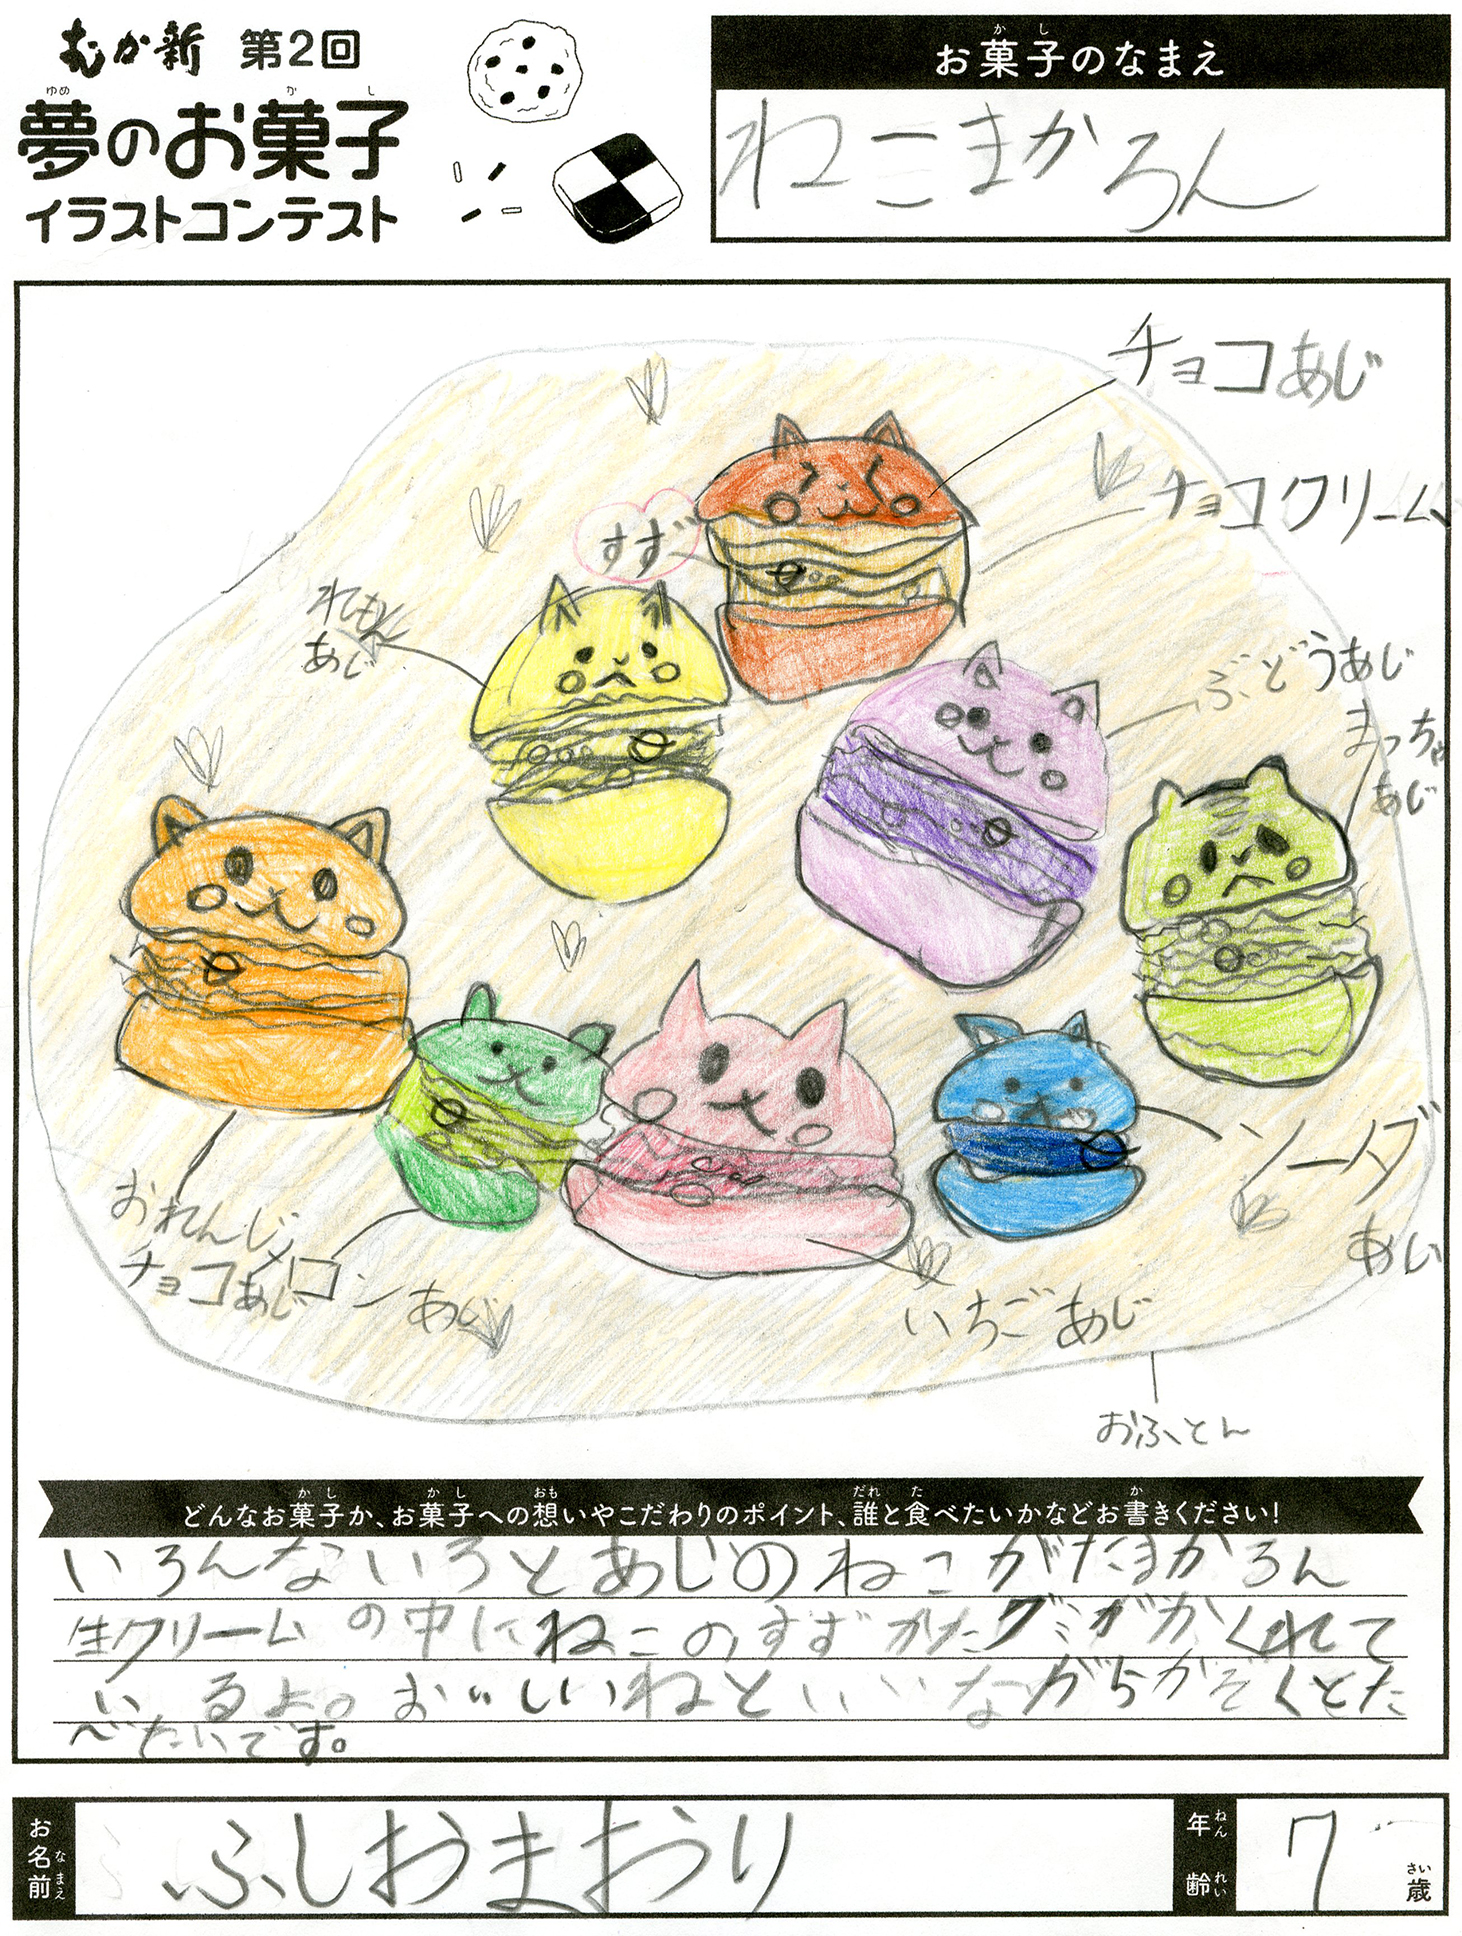 むか新 第2回
夢のお菓子
ゆめ か し
イラストコンテスト
お菓子のなまえ
か し
ねこまかろん
チョコあじ
チョコクリーム
すず
れもん
あじ
ぶどうあじ
まっちゃ
あじ
ソーダ
あじ
おれんじ
チョコあじ
メロンあじ
いちごあじ
おふとん
どんなお菓子か、お菓子への想いやこだわりのポイント、誰と食べたいかなどお書きください!
か し か し おも だれ た か
いろんないろとあじのねこがたまかろん
生クリームの中にねこのすずがたグミがかくれて
いるよ。おいしいねといいながらかぞくとた
べたいです。
お名前
な まえ
ふしおまおり
年齢
ねん れい
7
歳
さい